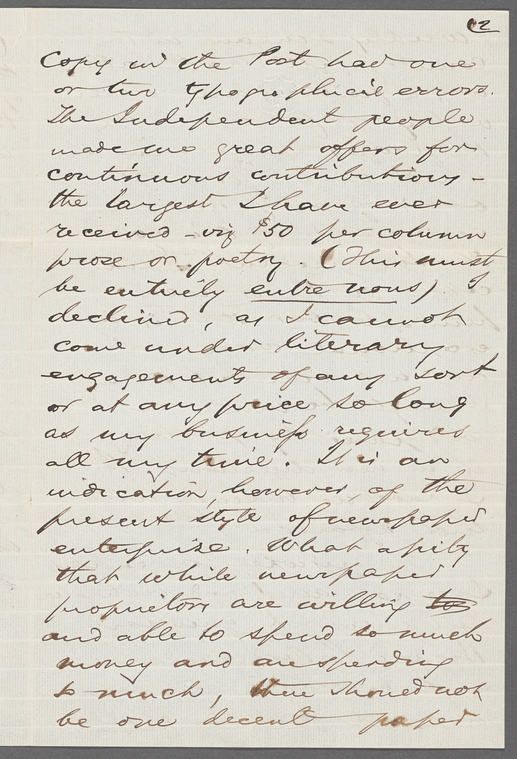 2
Copy in the Post had one
or two typographical errors.
The Independent people
made me great offers for
continuous contributions –
the largest I have ever
received – viz $50 per column
prose or poetry. (This must
be entirely entre nous) I
declined, as I cannot
come under literary
engagements of any sort
or at any price so long
as my business requires
all my time. It is an
indication, however, of the
present style of newspaper
enterprize. What a pity
that while newspaper
proprietors are willing to
and able to spend so much
money and are spending
so much, there should not
be one decent paper